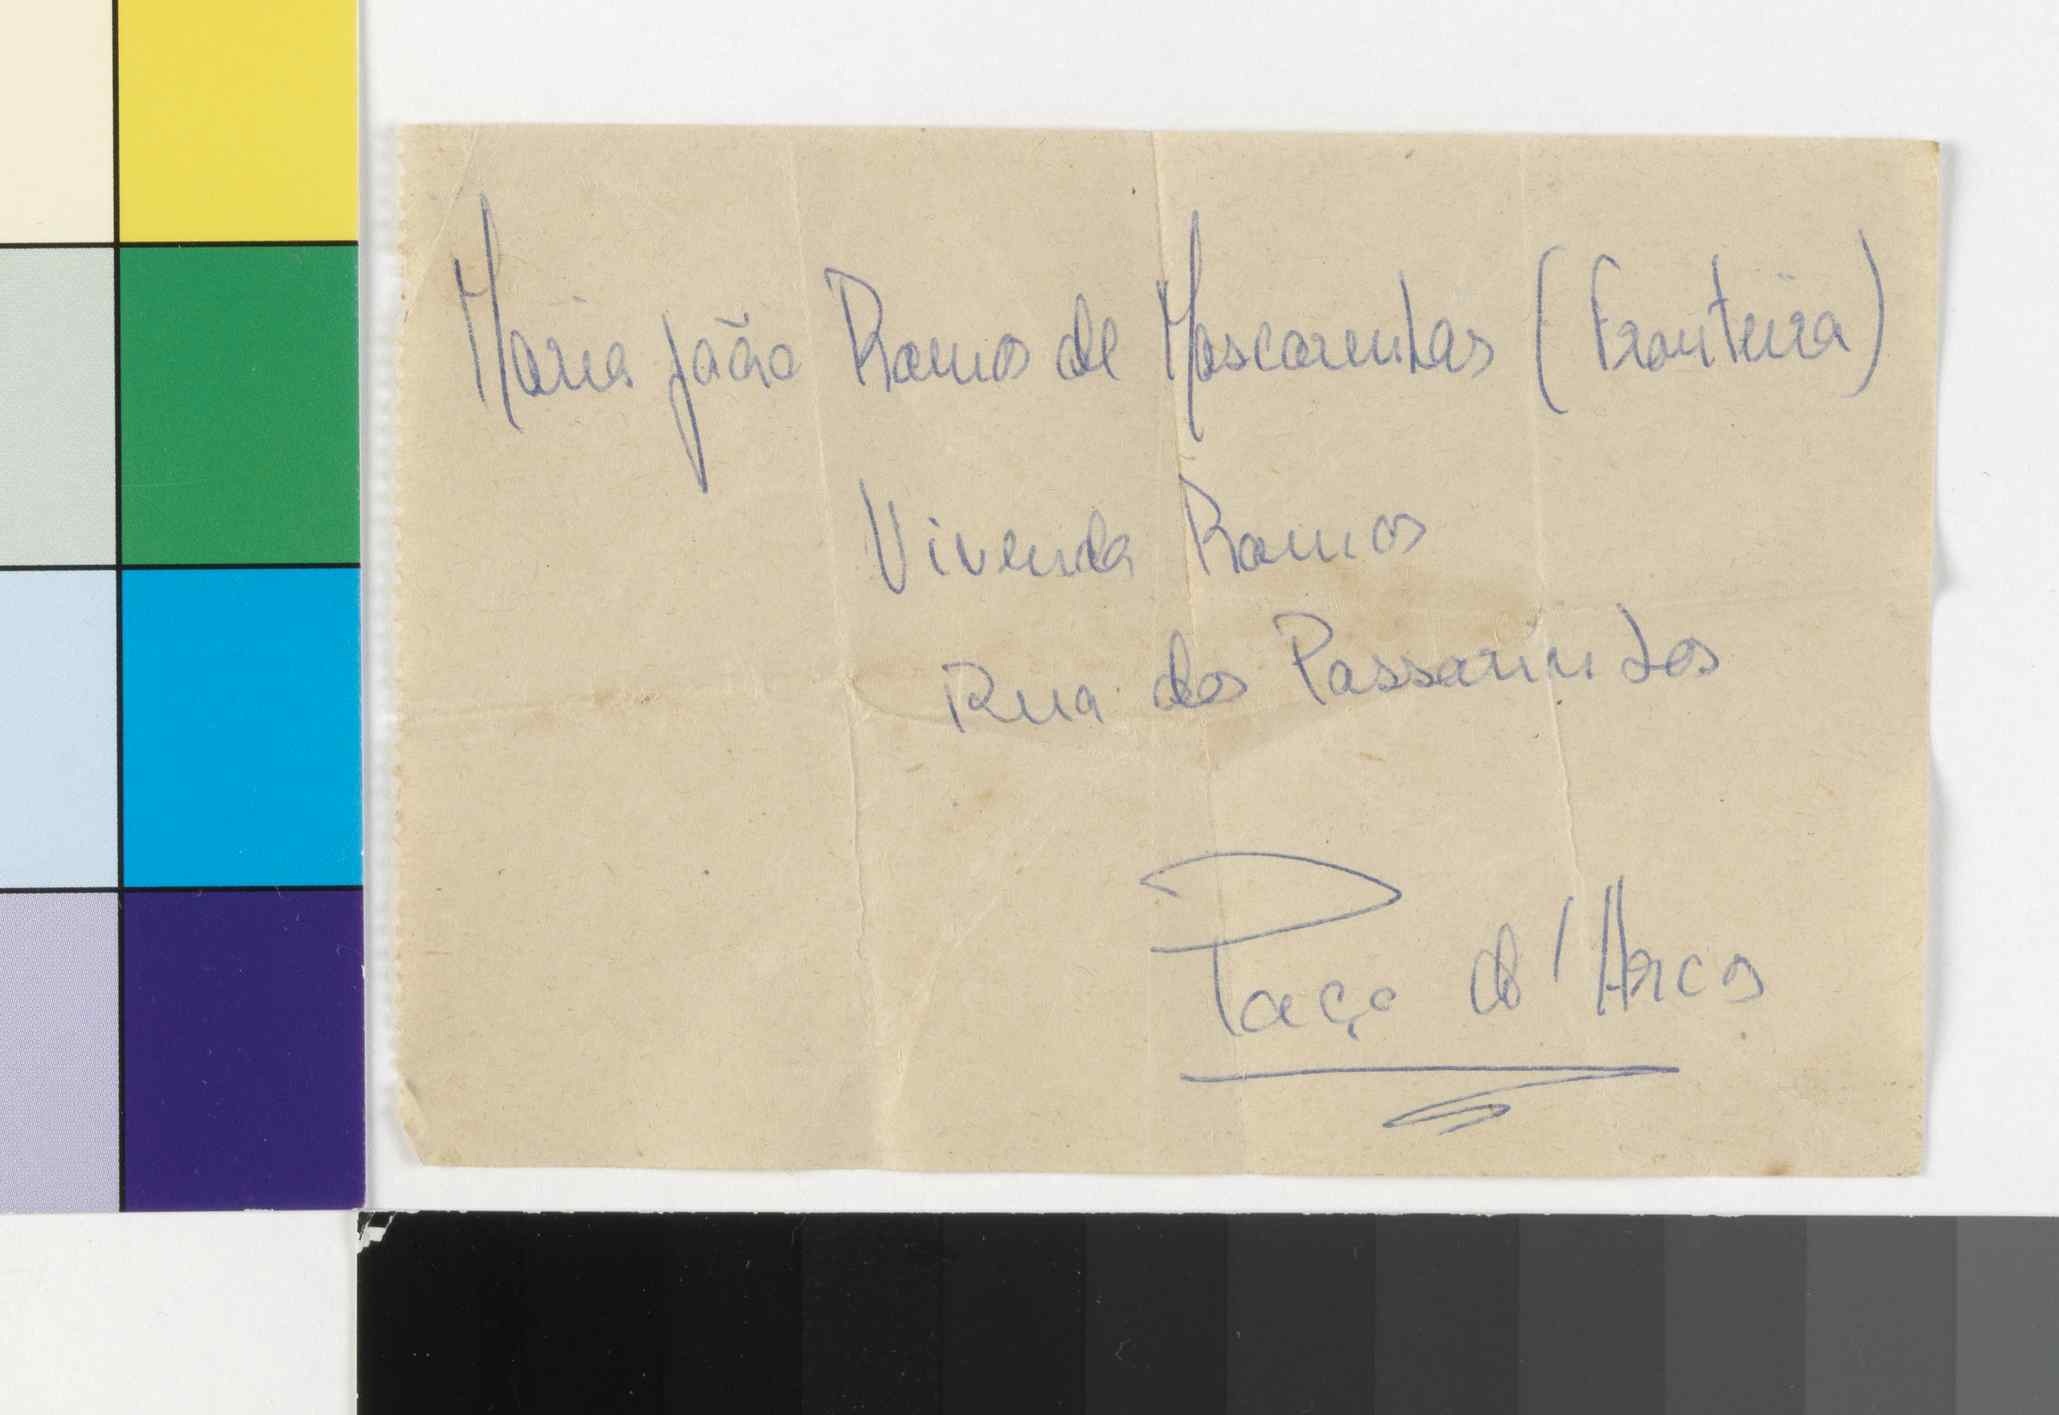 Maria João Ramos de Mascarenhas (Fronteira)
Vivenda Ramos
Rua dos Passarinhos
Paço d'Arcos